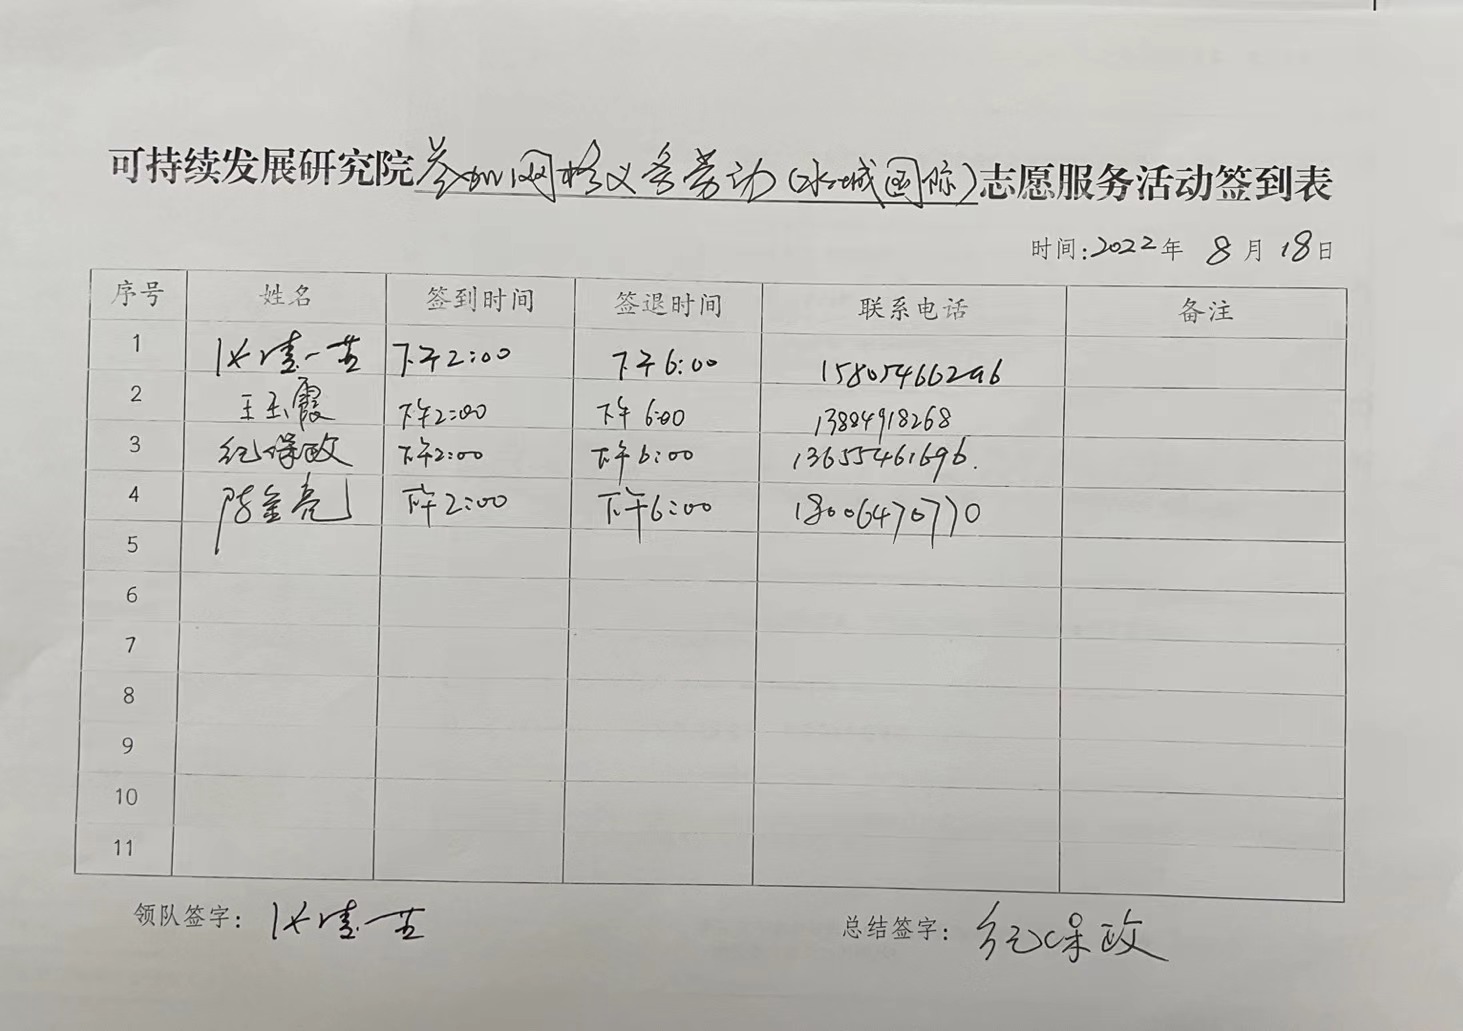 可持续发展研究院参加网格义务劳动(水城国际)志愿服务活动签到表
时间:2022年 8月 18日
序号 姓名 签到时间 签退时间 联系电话 备注
1 下午2:00 下午6:00 15805466296
2 王玉霞 下午2:00 下午6:00 13884918268
3 纪保政 下午2:00 下午6:00 13655461696.
4 陈金亮 下午2:00 下午6:00 18006470770
5
6
7
8
9
10
11
领队签字: 总结签字: 纪保政